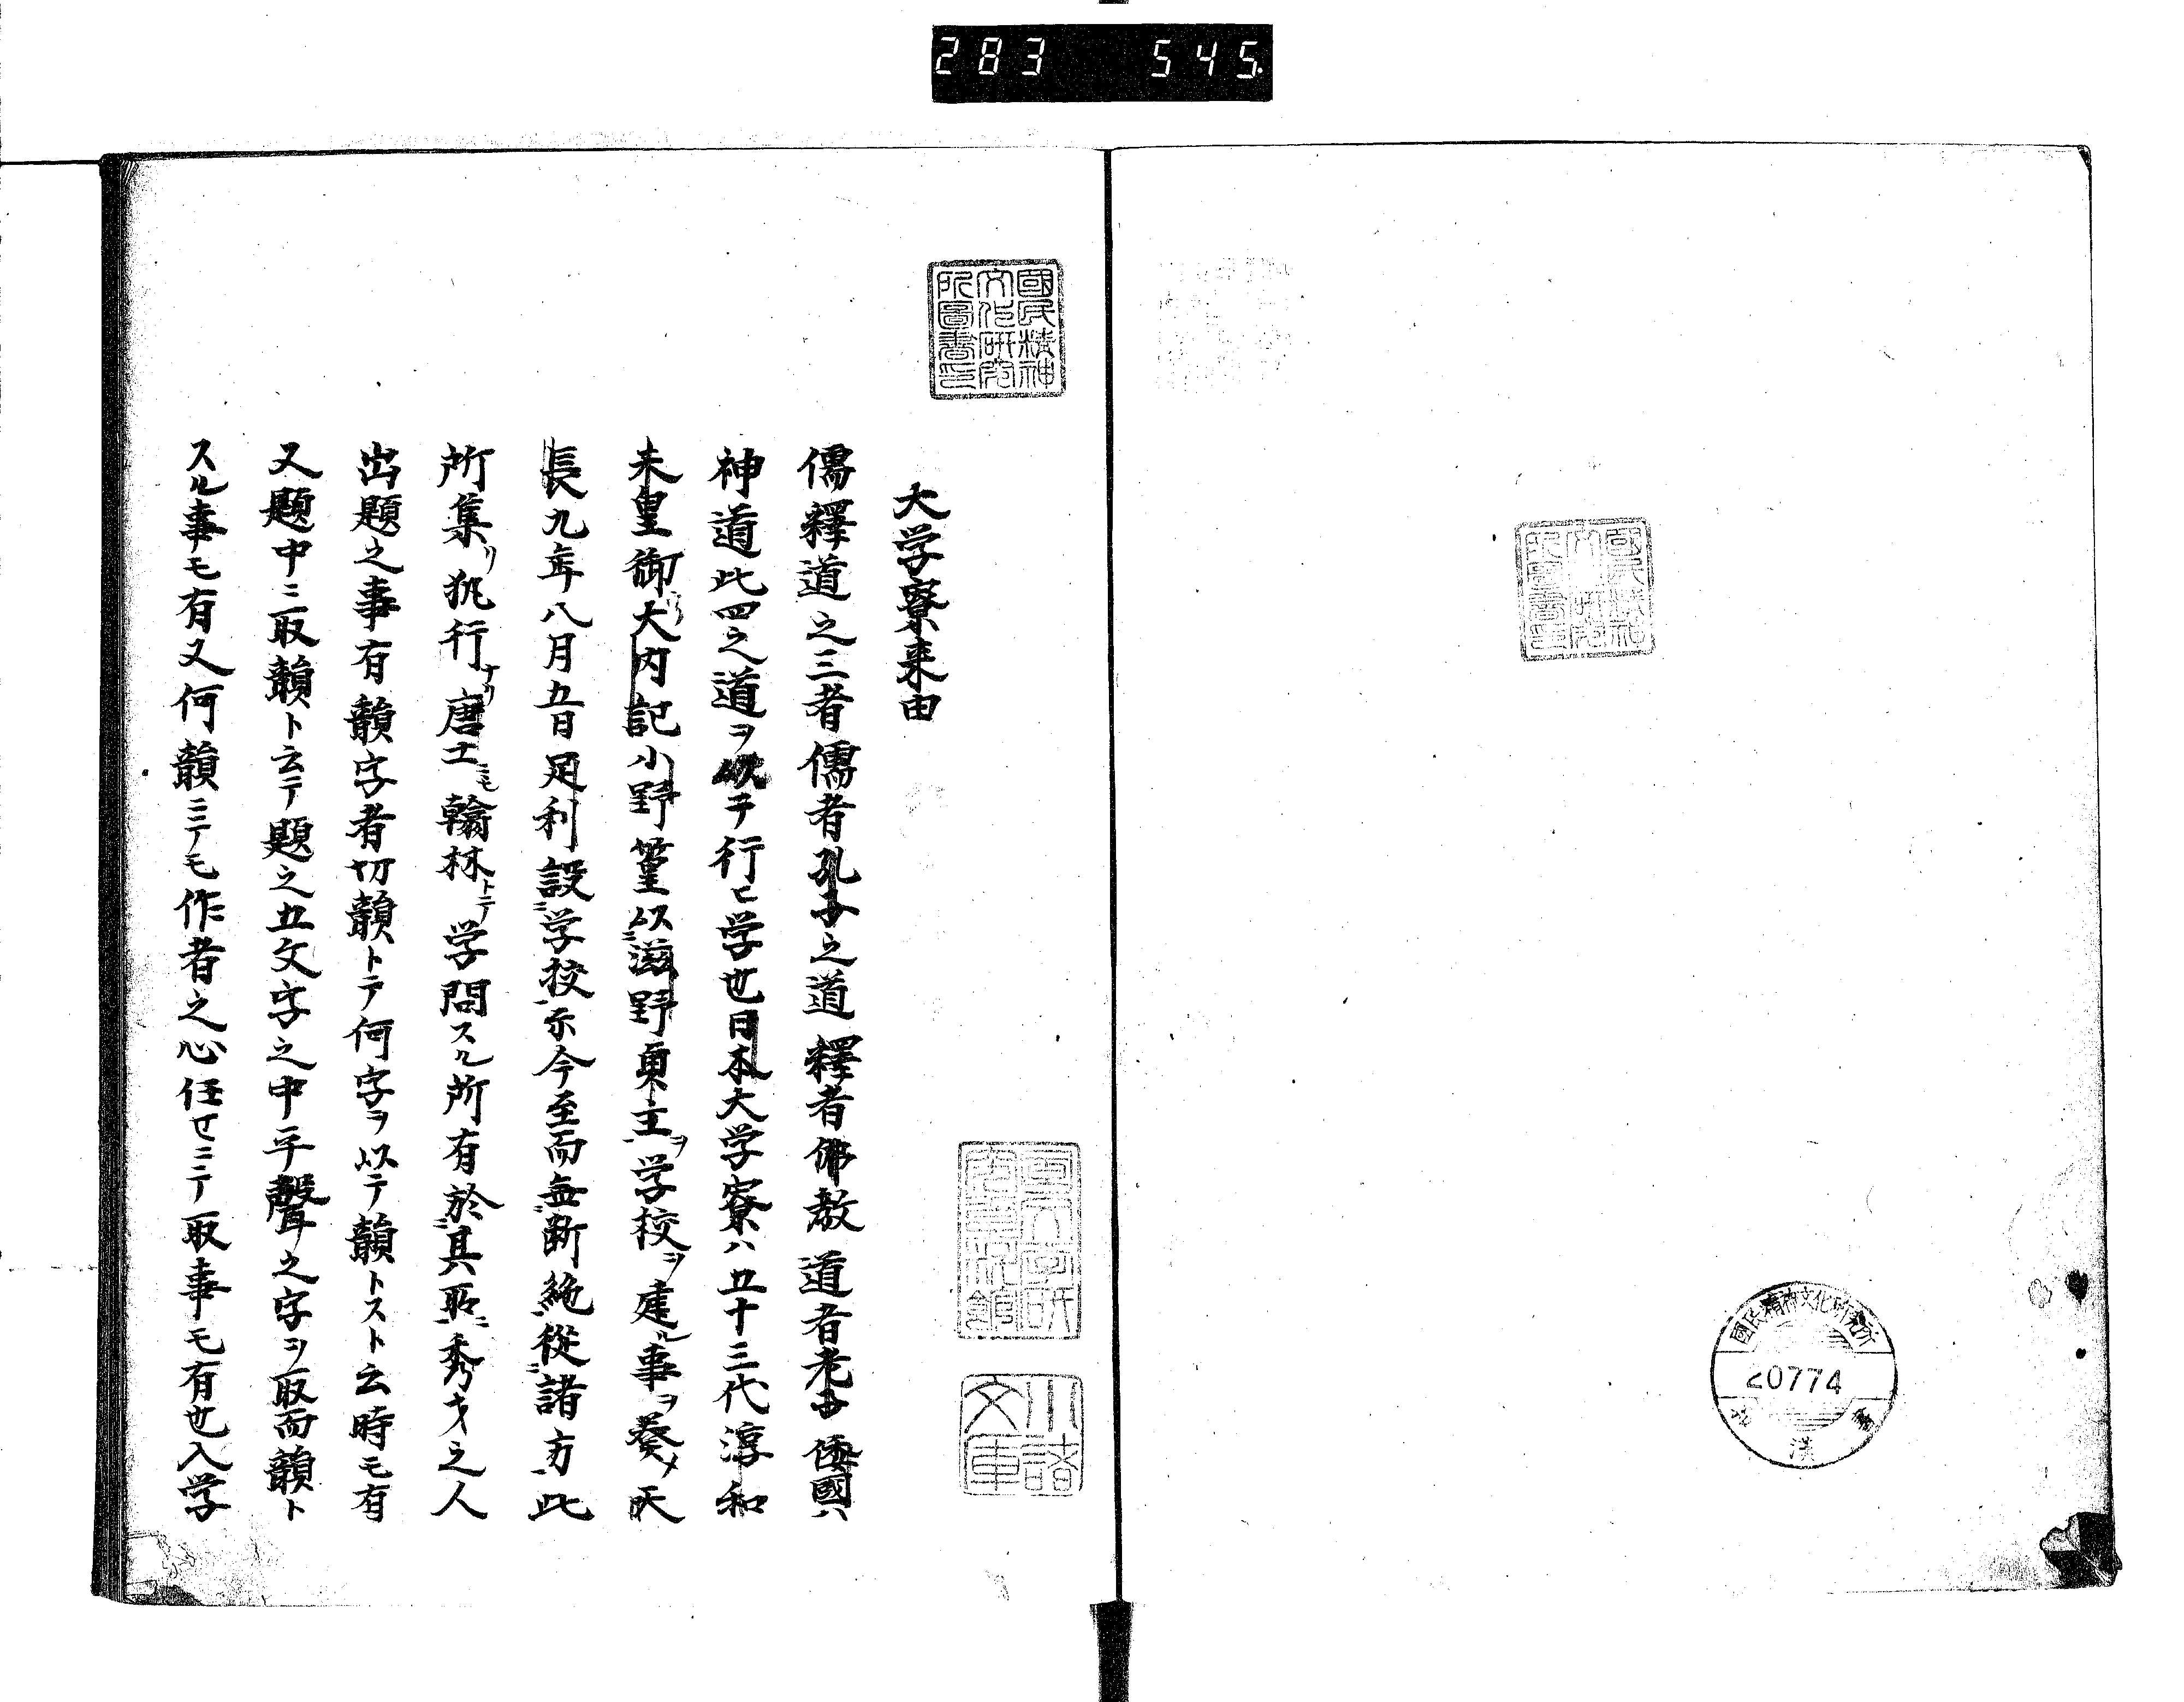 283 545
國民精神文化研究所
20774
國民精神
文化研究
所圖書印
小諸
文庫
大学寮来由
儒釋道之三者儒者孔子之道釋者佛教道者老子倭國ハ
神道此四之道ヲ以テ行ヒ学也日本大学寮ハ五十三代淳和
天皇御大内記小野篁以滋野貞主ヲ学校ヲ建ル事ヲ葵メ天
長九年八月五日足利設学校示今至而無断絶従諸方此
所集リ執行ナリ唐土ニモ翰林トテ学問スル所有於其取秀才之人
出題之事有韻字者切韻トテ何字ヲ以テ韻トスト云時モ有
又題中ニ取韻ト云テ題之五文字之中平聲之字ヲ取而韻ト
スル事モ有又何韻ニテモ作者之心任セニテ取事モ有也入学